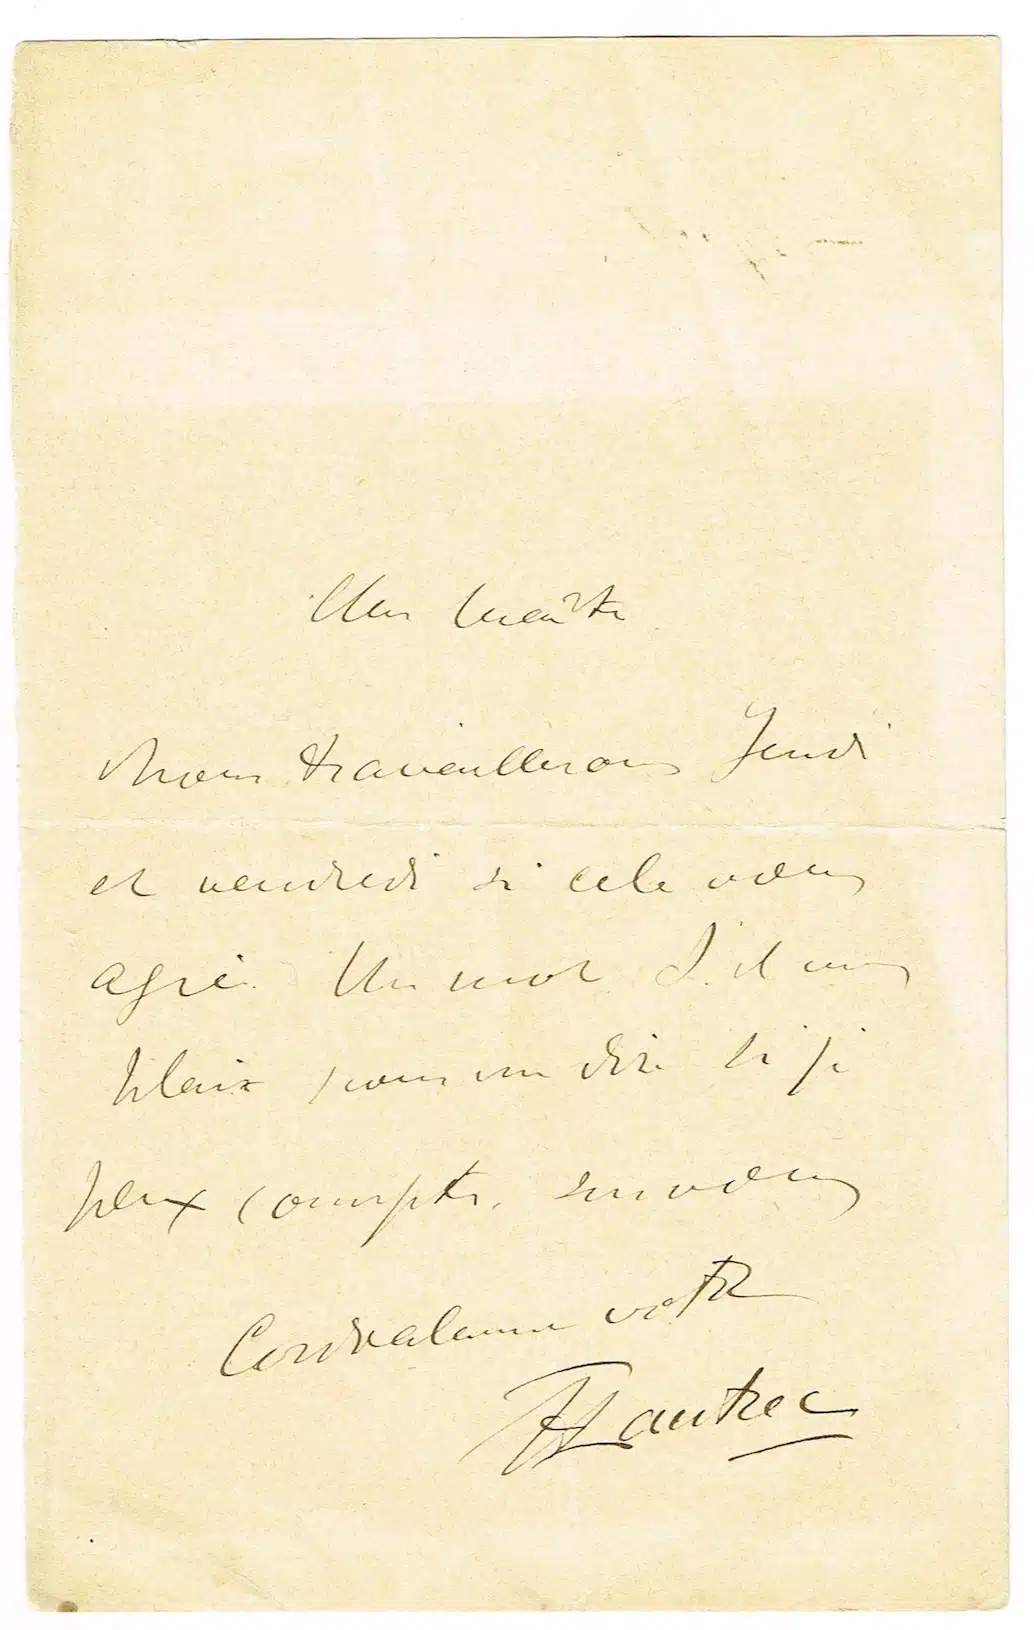 Mon maître
Nous travaillerons Jeudi
et vendredi si cela vous
agrée. Un mot S'il vous
plait pour me dire si je
peux compter sur vous
Cordialement votre
HTLautrec